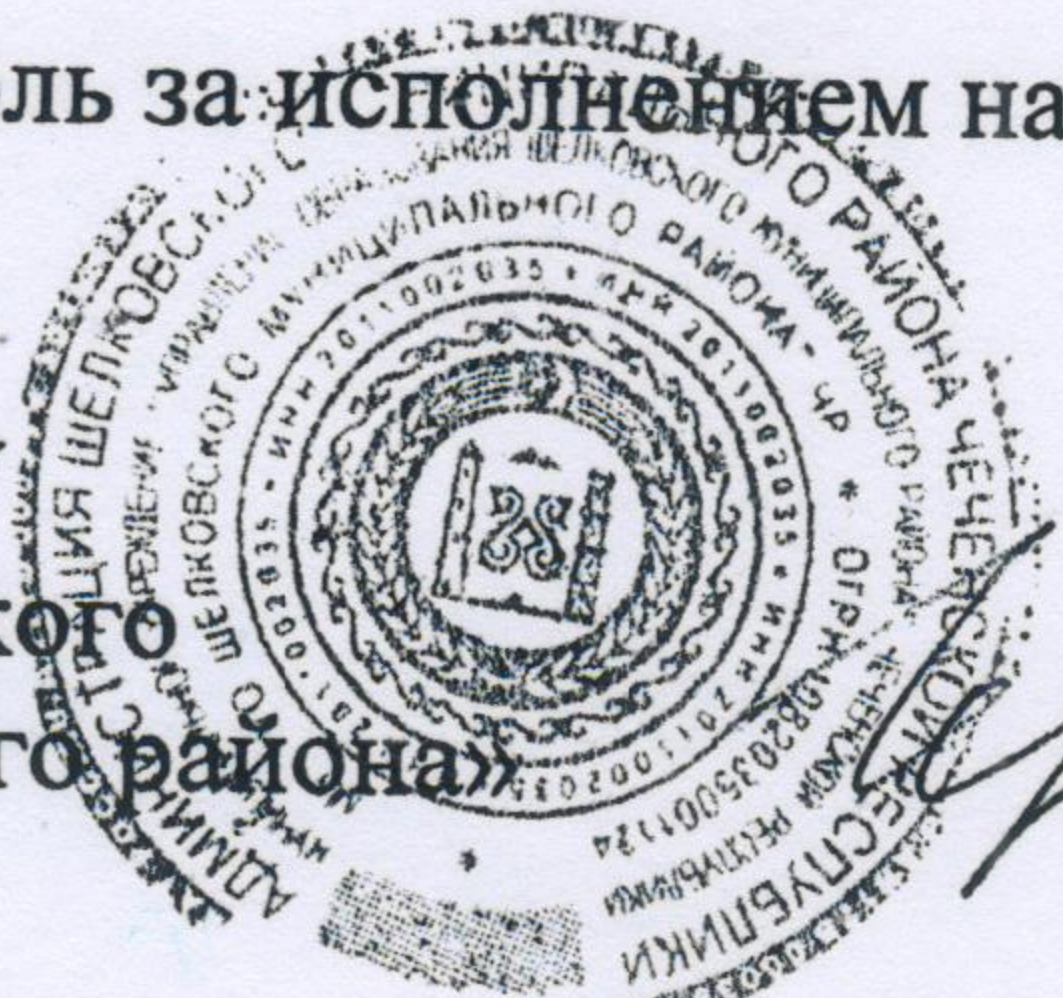 ль за исполнением на
кого
го района»
АДМИНИСТРАЦИЯ ШЕЛКОВСКОГО РАЙОНА ЧЕЧЕНСКОЙ РЕСПУБЛИКИ
УПРАВЛЕНИЕ ОБРАЗОВАНИЯ ШЕЛКОВСКОГО МУНИЦИПАЛЬНОГО РАЙОНА ЧЕЧЕНСКОЙ РЕСПУБЛИКИ
ШЕЛКОВСКОГО МУНИЦИПАЛЬНОГО РАЙОНА" ЧР * ОГРН 1082035001124
ИНН 2011002035 * ИНН 2011002035 * ИНН 2011002035